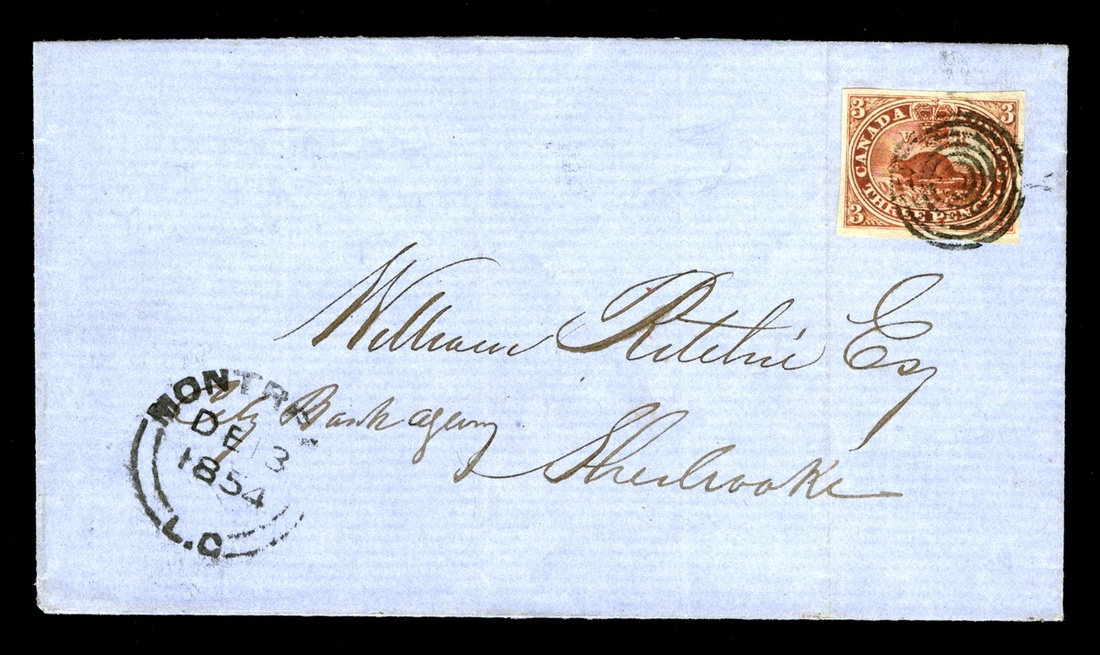 3 3
CANADA
THREE PENCE
3
William Ritchie Esq
City Bank agency
Sherbrooke
MONTRE
DE 13
1854
L.C